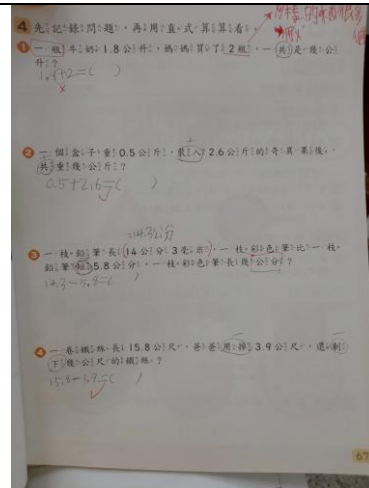 4 先記錄問題，再用直式算算看。
1 一瓶牛奶1.8公升，媽媽買了2瓶，一共是幾公
升？
1.8+2=( )
2 一個盒子重0.5公斤，裝入2.6公斤的奇異果後，
共重幾公斤？
0.5+2.6=( )
=14.3公分
3 一枝鉛筆長14公分3毫米，一枝彩色筆比一枝
鉛筆短5.8公分，一枝彩色筆長幾公分？
14.3-5.8=( )
4 一卷鐵絲長15.8公尺，爸爸用掉3.9公尺，還剩
下幾公尺的鐵絲？
67